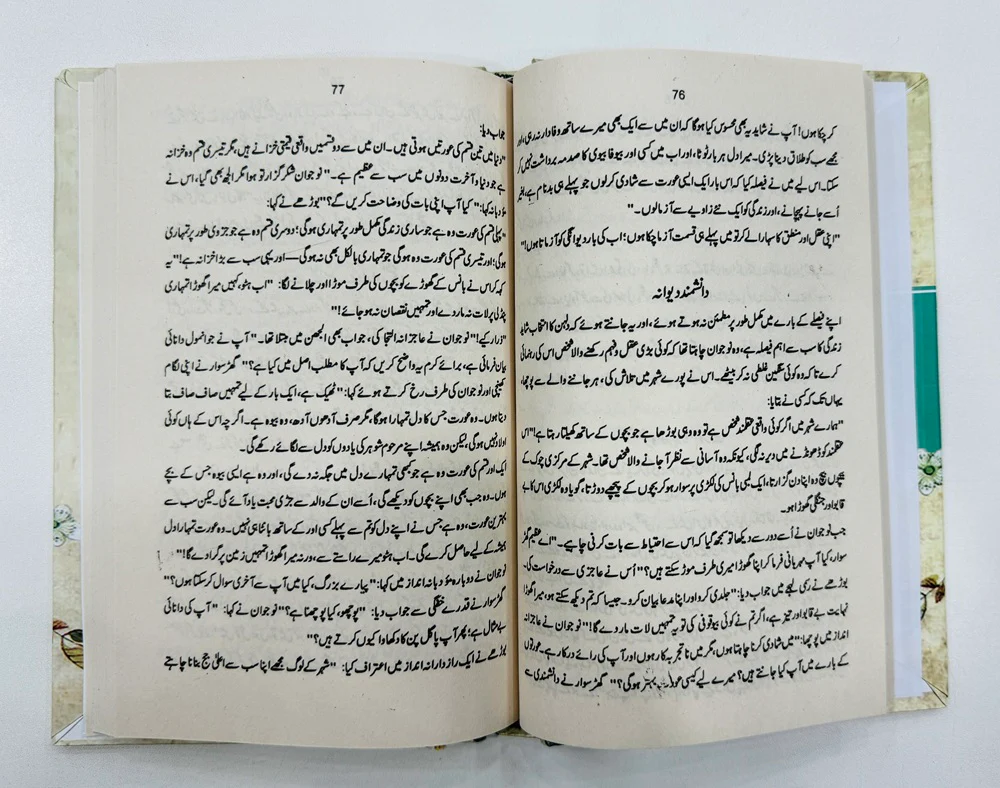 76
کر چکا ہوں! آپ نے شاید یہ بھی محسوس کیا ہوگا کہ ان میں سے ایک بھی میرے ساتھ وفادار نہ رہی، اور
مجھے سب کو طلاق دینا پڑی۔ میرا دل ہر بار ٹوٹا، اور اب میں کسی اور بیوفا بیوی کا صدمہ برداشت نہیں کر
سکتا۔ اس لیے میں نے فیصلہ کیا کہ اس بار ایک ایسی عورت سے شادی کر لوں جو پہلے ہی بدنام ہے، بغیر
اُسے جانے پہچانے، اور زندگی کو ایک نئے زاویے سے آزما لوں۔"
"اپنی عقل اور منطق کا سہارا لے کر تو میں پہلے ہی قسمت آزما چکا ہوں؛ اب کی بار دیوانگی کو آزماتا ہوں!"
دانشمند دیوانہ
اپنے فیصلے کے بارے میں مکمل طور پر مطمئن نہ ہوتے ہوئے، اور یہ جانتے ہوئے کہ دلہن کا انتخاب شاید
زندگی کا سب سے اہم فیصلہ ہے، وہ نوجوان چاہتا تھا کہ کوئی بڑی عقل و فہم رکھنے والا شخص اس کی رہنمائی
کرے تاکہ وہ کوئی سنگین غلطی نہ کر بیٹھے۔ اس نے پورے شہر میں تلاش کی، ہر جاننے والے سے پوچھا،
یہاں تک کہ کسی نے بتایا:
"ہمارے شہر میں اگر کوئی واقعی عقلمند شخص ہے تو وہ وہی بوڑھا ہے جو بچوں کے ساتھ کھیلتا رہتا ہے!" اس
عقلمند کو ڈھونڈنے میں دیر نہ لگی، کیونکہ وہ آسانی سے نظر آ جانے والا شخص تھا۔ شہر کے مرکزی چوک کے
بیچوں بیچ وہ اپنا دن گزارتا، ایک لمبی بانس کی لکڑی پر سوار ہو کر بچوں کے پیچھے دوڑتا، گویا وہ لکڑی اس کا بے
قابو اور جنگلی گھوڑا ہو۔
جب نوجوان نے اُسے دور سے دیکھا تو سمجھ گیا کہ اس سے احتیاط سے بات کرنی چاہیے۔ "اے عظیم گھڑ
سوار، کیا آپ مہربانی فرما کر اپنا گھوڑا میری طرف موڑ سکتے ہیں؟" اُس نے عاجزی سے درخواست کی۔
بوڑھے نے رسمی لہجے میں جواب دیا: "جلدی کرو اور اپنا مدعا بیان کرو۔ جیسا کہ تم دیکھ سکتے ہو، میرا گھوڑا
نہایت بے قابو اور تیز ہے، اگر تم نے کوئی بیوقوفی کی تو یہ تمہیں لات مار دے گا!" نوجوان نے عاجزانہ
انداز میں پوچھا: "میں شادی کرنا چاہتا ہوں، مگر میں ناتجربہ کار ہوں اور آپ کی رائے درکار ہے۔ عورتوں
کے بارے میں آپ کیا جانتے ہیں؟ میرے لیے کیسی عورت بہتر ہوگی؟" گھڑ سوار نے دانشمندی سے
77
جواب دیا:
"دنیا میں تین قسم کی عورتیں ہوتی ہیں۔ ان میں سے دو قسمیں واقعی قیمتی خزانے ہیں، مگر تیسری قسم وہ خزانہ
ہے جو دنیا و آخرت دونوں میں سب سے عظیم ہے۔" نوجوان شکر گزار تو ہوا مگر الجھ بھی گیا، اس نے
مؤدبانہ کہا: "کیا آپ اپنی بات کی وضاحت کریں گے؟" بوڑھے نے کہا:
"پہلی قسم کی عورت وہ ہے جو ساری زندگی مکمل طور پر تمہاری ہوگی؛ دوسری قسم وہ ہے جو جزوی طور پر تمہاری
ہوگی؛ اور تیسری قسم کی عورت وہ ہوگی جو تمہاری بالکل بھی نہ ہوگی—اور یہی سب سے بڑا خزانہ ہے!" یہ
کہہ کر اس نے بانس کے گھوڑے کو بچوں کی طرف موڑا اور چلانے لگا: "اب ہٹو، کہیں میرا گھوڑا تمہاری
پنڈلی پر لات نہ مار دے اور تمہیں نقصان نہ ہو جائے!"
"ذرا رکیے!" نوجوان نے عاجزانہ التجا کی، جو اب بھی الجھن میں مبتلا تھا۔ "آپ نے جو انمول دانائی
بیان فرمائی ہے، برائے کرم یہ واضح کریں کہ آپ کا مطلب اصل میں کیا ہے؟" گھڑ سوار نے اپنی لگام
کھینچی اور نوجوان کی طرف رخ کرتے ہوئے کہا: "ٹھیک ہے، ایک بار کے لیے تمہیں صاف صاف بتا
دیتا ہوں۔ وہ عورت جس کا دل تمہارا ہوگا، مگر صرف آدھوں آدھ، وہ بیوہ ہے۔ اگرچہ اس کے ہاں کوئی
اولاد نہیں ہوگی، لیکن وہ ہمیشہ اپنے مرحوم شوہر کی یادوں کو دل سے لگائے رکھے گی۔
ایک اور قسم کی عورت وہ ہے جو کبھی تمہارے دل میں جگہ نہ دے گی، اور وہ ہے ایسی بیوہ جس کے بچے
ہوں۔ وہ جب بھی اپنے بچوں کو دیکھے گی، اُسے ان کے والد سے جڑی محبت یاد آئے گی۔ لیکن سب سے
بہترین عورت، وہ ہے جس نے اپنے دل کو تم سے پہلے کسی اور کے ساتھ بانٹا ہی نہیں۔ وہ عورت تمہارا دل
ہمیشہ کے لیے حاصل کرے گی۔ اب ہٹو میرے راستے سے، ورنہ میرا گھوڑا تمہیں زمین پر گرا دے گا!"
نوجوان نے دوبارہ مؤدبانہ انداز میں کہا: "پیارے بزرگ، کیا میں آپ سے آخری سوال کر سکتا ہوں؟"
گھڑ سوار نے قدرے خفگی سے جواب دیا: "پوچھو، کیا پوچھنا ہے؟" نوجوان نے کہا: "آپ کی دانائی
بے مثال ہے؛ پھر آپ پاگل پن کا دکھاوا کیوں کرتے ہیں؟"
بوڑھے نے ایک رازدارانہ انداز میں اعتراف کیا: "شہر کے لوگ مجھے اپنا سب سے اعلیٰ جج بنانا چاہتے